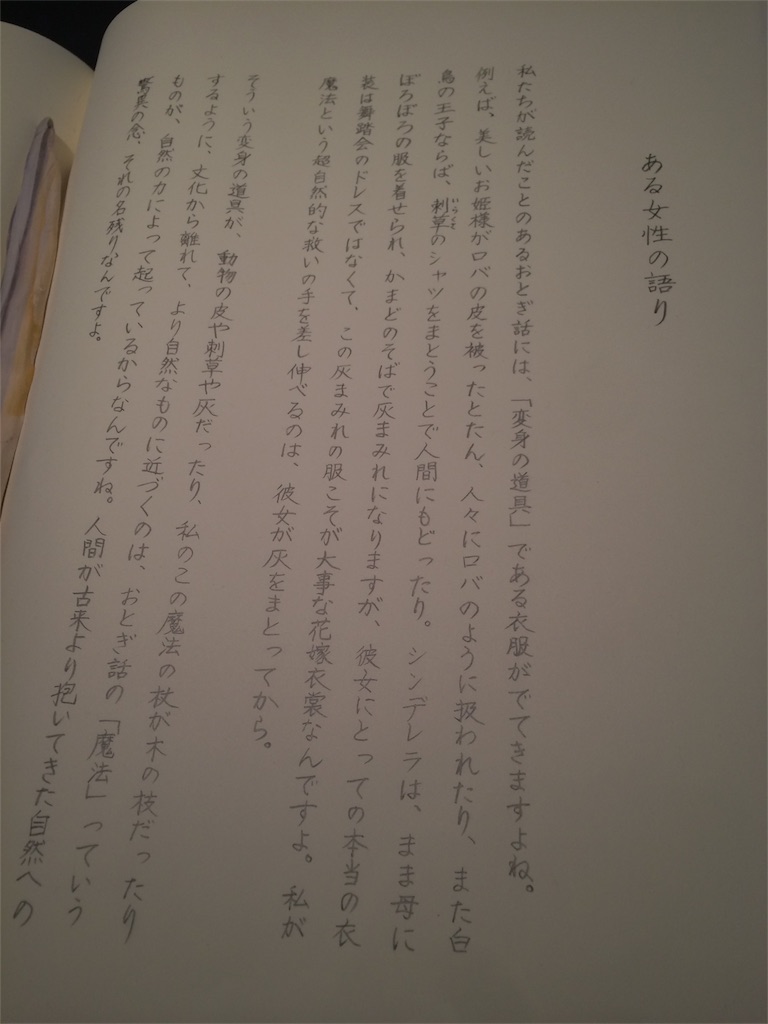 ある女性の語り
私たちが読んだことのあるおとぎ話には、「変身の道具」である衣服がでてきますよね。
例えば、美しいお姫様がロバの皮を被ったとたん、人々にロバのように扱われたり、また白
鳥の王子ならば、刺草のシャツをまとうことで人間にもどったり。シンデレラは、まま母に
ぼろぼろの服を着せられ、かまどのそばで灰まみれになりますが、彼女にとっての本当の衣
装は舞踏会のドレスではなくて、この灰まみれの服こそが大事な花嫁衣裳なんですよ。私が
魔法という超自然的な救いの手を差し伸べるのは、彼女が灰をまとってから。
そういう変身の道具が、動物の皮や刺草や灰だったり、私のこの魔法の杖が木の枝だったり
するように、文化から離れて、より自然なものに近づくのは、おとぎ話の「魔法」っていう
ものが、自然の力によって起っているからなんですね。人間が古来より抱いてきた自然への
驚異の念、それの名残りなんですよ。